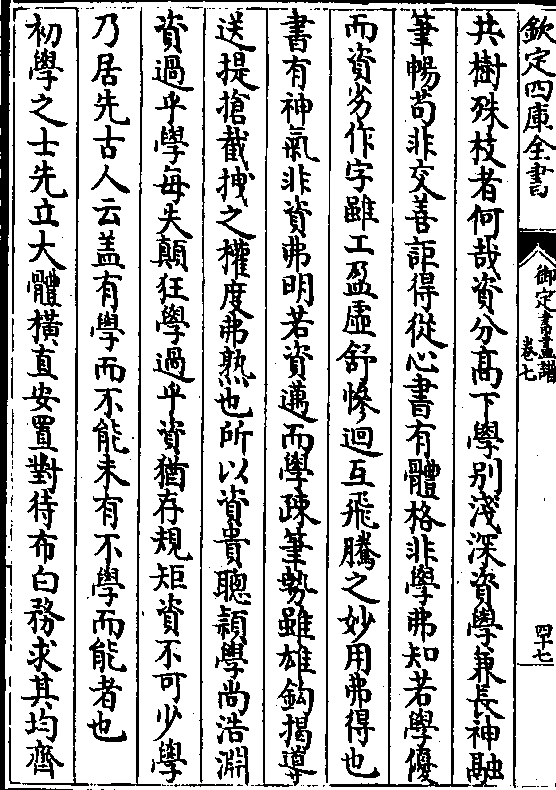 欽定四庫全書
御定書畫譜
卷七
四十七
共樹殊枝者何哉資分高下學别淺深資學兼長神融
筆暢苟非交善詎得從心書有體格非學弗知若學優
而資劣作字雖工盈虚舒慘迴互飛騰之妙用弗得也
書有神氣非資弗明若資邁而學疎筆勢雖雄鈎揭導
送提搶截拽之權度弗熟也所以資貴聰頴學尚浩淵
資過乎學每失顛狂學過乎資猶存規矩資不可少學
乃居先古人云盖有學而不能未有不學而能者也
初學之士先立大體橫直安置對待布白務求其均齊